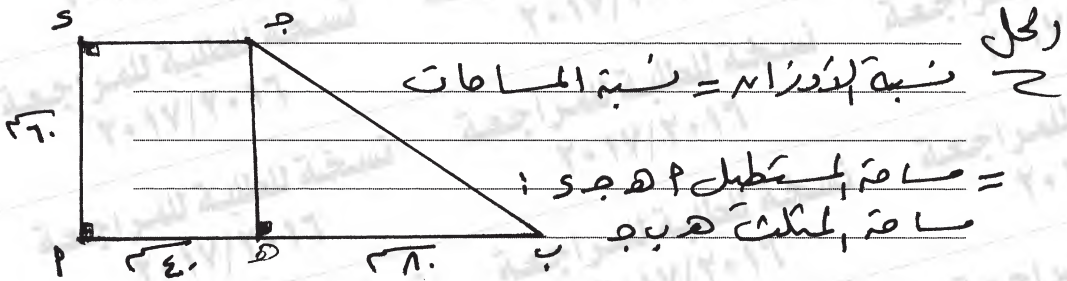 الحل
نسبة الأوزان = نسبة المساحات
= مساحة المستطيل أ هـ جـ د :
مساحة المثلث هـ ب جـ
د
جـ
٦٠ سم
أ
٤٠ سم
هـ
٨٠ سم
ب
نسخة للطلبة للمراجعة
٢٠١٧/٢٠١٦